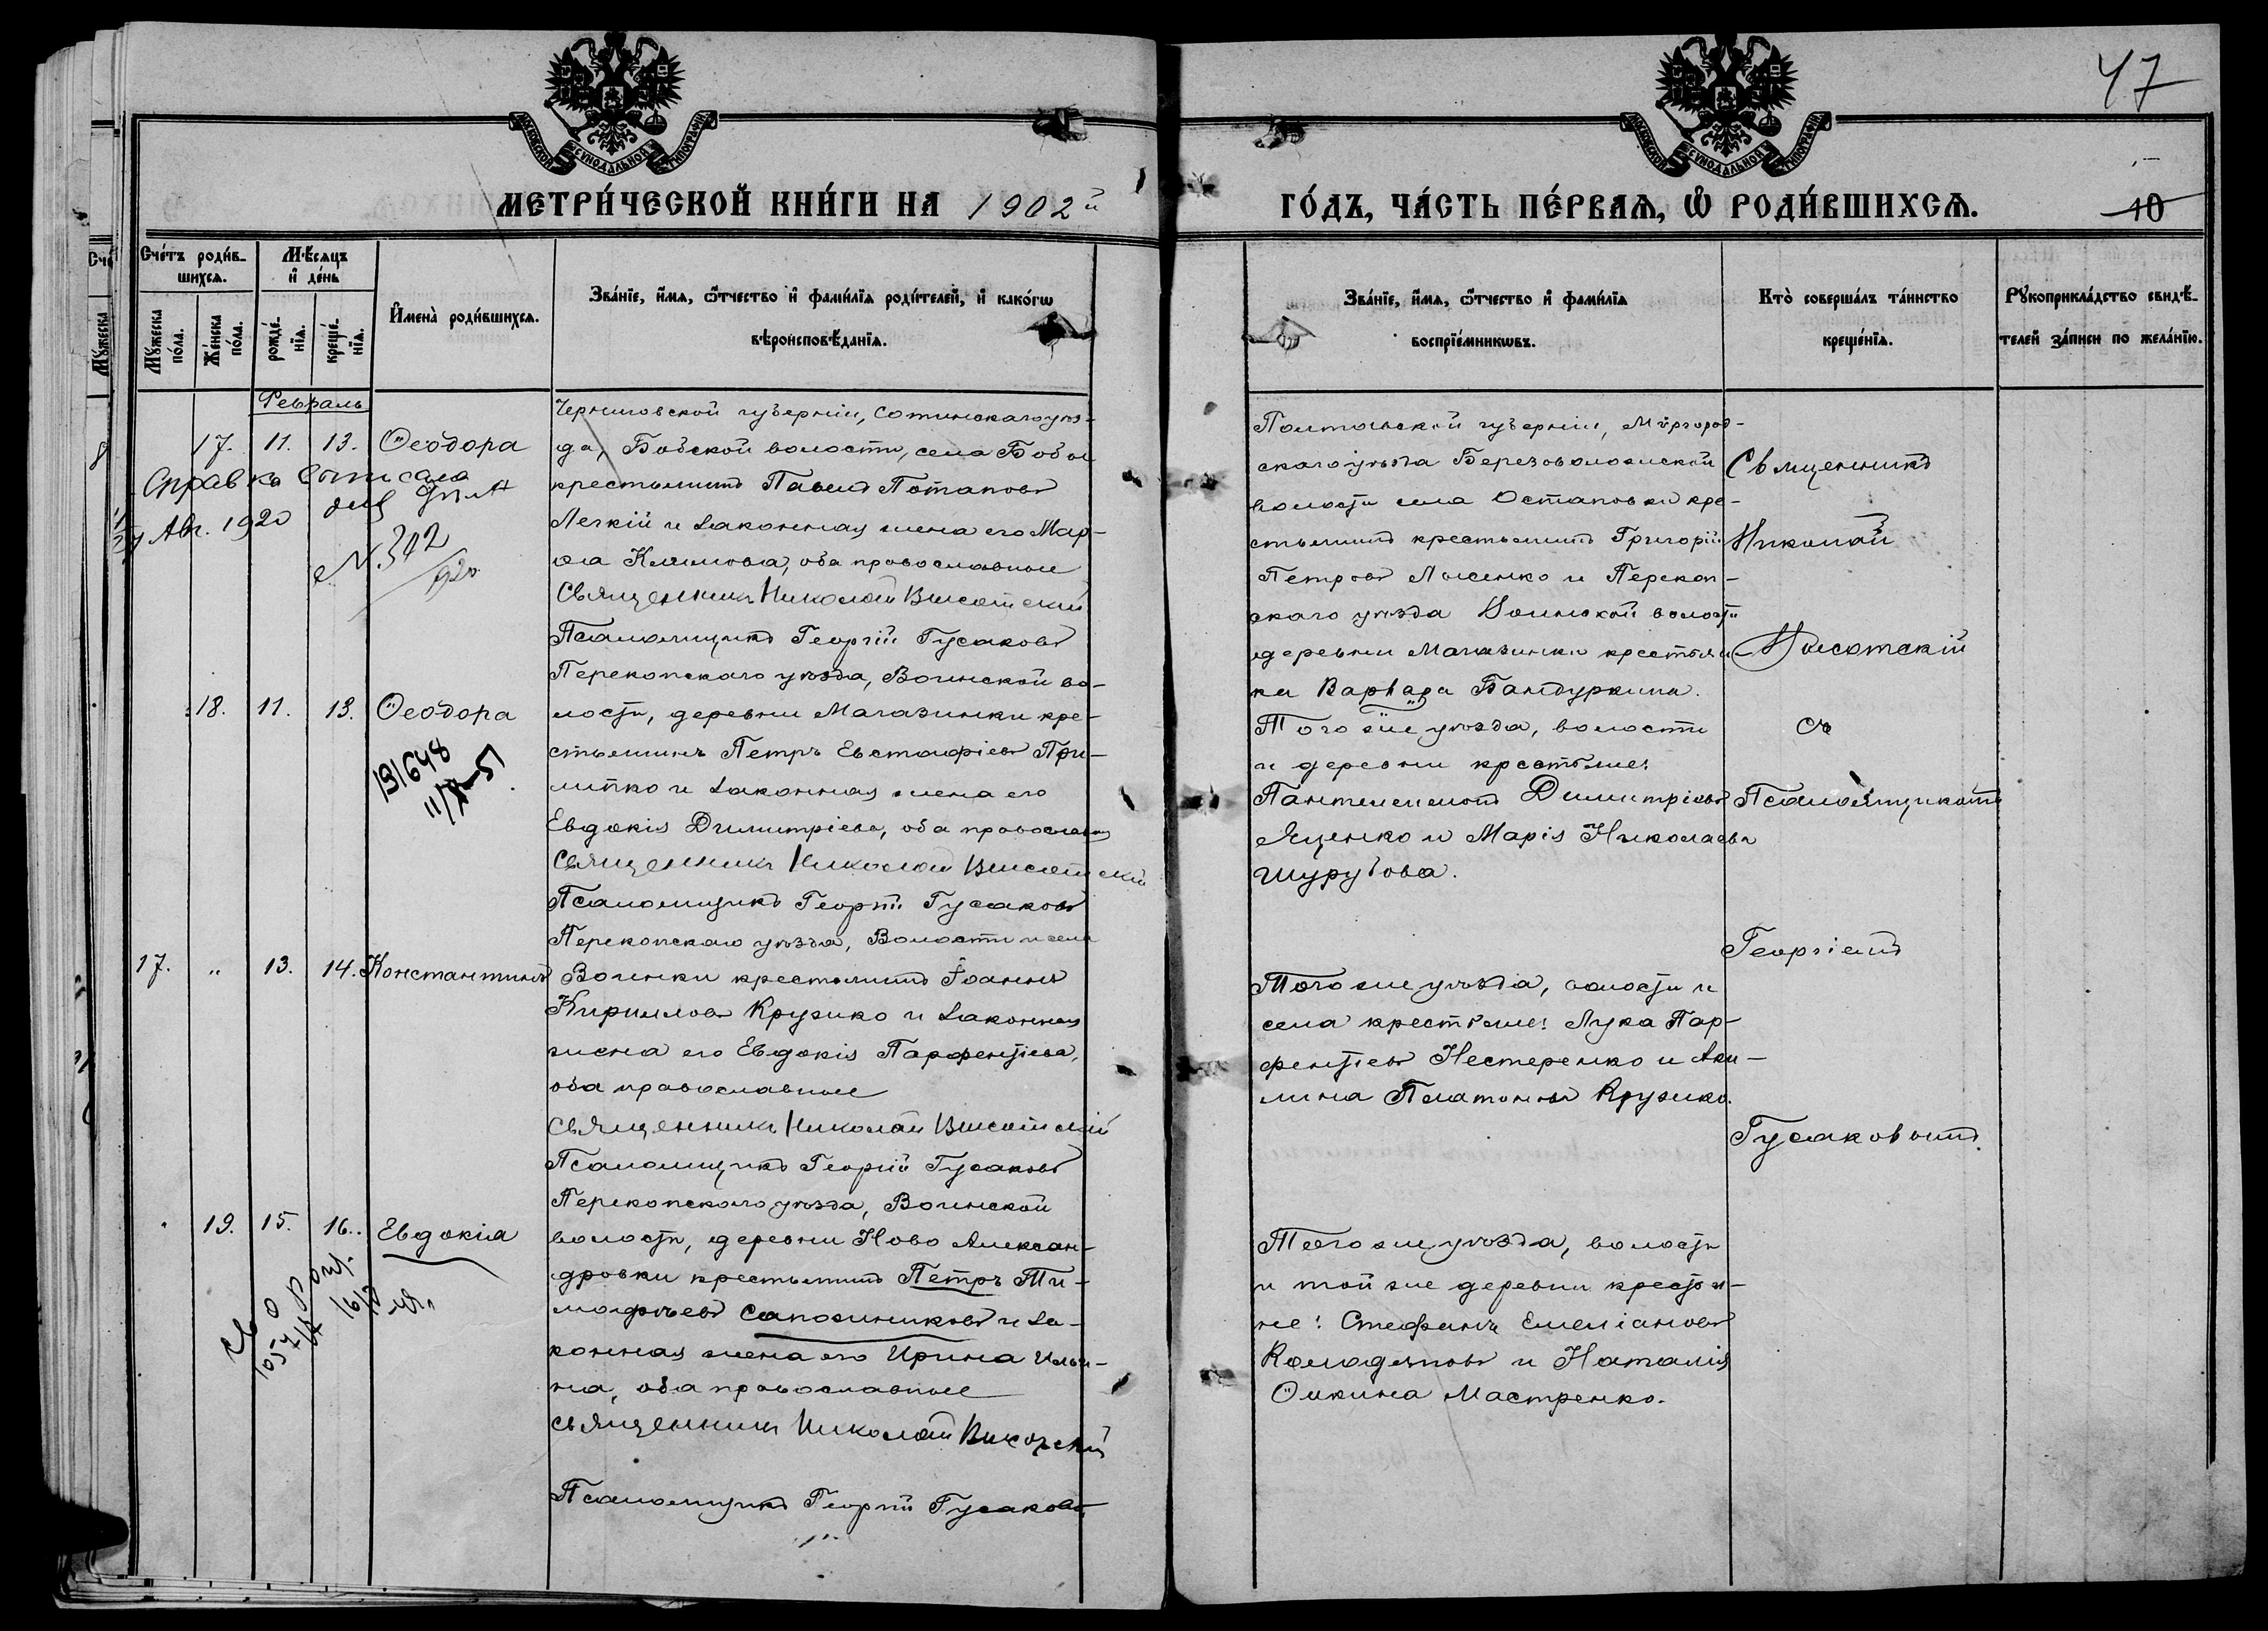 47
МОСКОВСКОЙ СУНОДАЛЬНОЙ ТИПОГРАФІИ
МОСКОВСКОЙ СУНОДАЛЬНОЙ ТИПОГРАФІИ
МЕТРИ́ЧЕСКОЙ КНИ́ГИ НА 1902й
ГО́ДЪ, ЧА́СТЬ ПЕ́РВАѦ, Ѽ РОДИ́ВШИХСѦ.
10
Счéтъ роди́в-
шихся.
Мѣ́сяцъ
и҆ де́нь
Мꙋ́жеска по́ла.
Же́нска по́ла.
рожде́-нїя.
креще́-нїя.
И҆мена̀ роди́вшихся.
Зва́нїе, и҆́мя, ѻ҆́тчество и҆ фами́лїя роди́телей, и҆ како́гѡ
вѣроисповѣ́данїя.
Зва́нїе, и҆́мя, ѻ҆́тчество и҆ фами́лїя
воспрїе́мникѡвъ.
Кто̀ соверша́лъ та́инство
креще́нїя.
Рꙋкоприкла́дство свидѣ́-
телей за́писи по жела́нїю.
Февраль
17. 11. 13. Ѳеодора
Черниговской губерніи, Сотинскаго уѣз-
да, Бобской волости, села Бобы
крестьянинъ Павелъ Потаповъ
Легкій и законная жена его Мар-
ѳа Климова, оба православные
Священникъ Николай Высотскій
Псаломщикъ Георгій Гусаковъ
Полтавской губерніи, Миргород-
скаго уѣзда Березоволоской
волости села Остаповки кре-
стьянинъ крестьянинъ Григорій
Петровъ Лысенко и Перекоп-
скаго уѣзда Воинской волости
деревни Магазинки крестьян
ка Варвара Бандуркина.
Справка выписана
Авг. 1920
N. 342
920
18. 11. 13. Ѳеодора
Перекопскаго уѣзда, Воинской во-
лости, деревни Магазинки кре-
стьянинъ Петръ Евстафіевъ При-
липко и законная жена его
Евдокія Димитріева, оба православн
Священникъ Николай Высотскій
Псаломщикъ Георгій Гусаковъ
Того же уѣзда, волости
и деревни крестьяне:
Пантелеимонъ Димитріевъ
Яценко и Марія Николаева
Шурубова.
191648
17. " 13. 14. Константинъ
Перекопскаго уѣзда, Волости и села
Воинки крестьянинъ Іоаннъ
Кирилловъ Кружко и законная
жена его Евдокія Парфентіева,
оба православные
Священникъ Николай Высотскій
Псаломщикъ Георгій Гусаковъ
Того же уѣзда, волости и
села крестьяне: Лука Пар-
фентіевъ Нестеренко и Аки-
лина Платонова Кружко.
19. 15. 16. Евдокіа
Перекопскаго уѣзда, Воинской
волости, деревни Ново Алексан-
дровки крестьянинъ Петръ Ти-
мофѣевъ Сапожниковъ и за-
конная жена его Ирина Ильи-
на, оба православные
Священникъ Николай Высотскій
Псаломщикъ Георгій Гусаковъ
Того же уѣзда, волости
и той же деревни крестья-
не: Стефанъ Емеліановъ
Колодяповъ и Наталія
Ѳомкина Мастренко.
Священникъ
Николай
Высотскій
съ
Псаломщикомъ
Георгіемъ
Гусаковымъ.